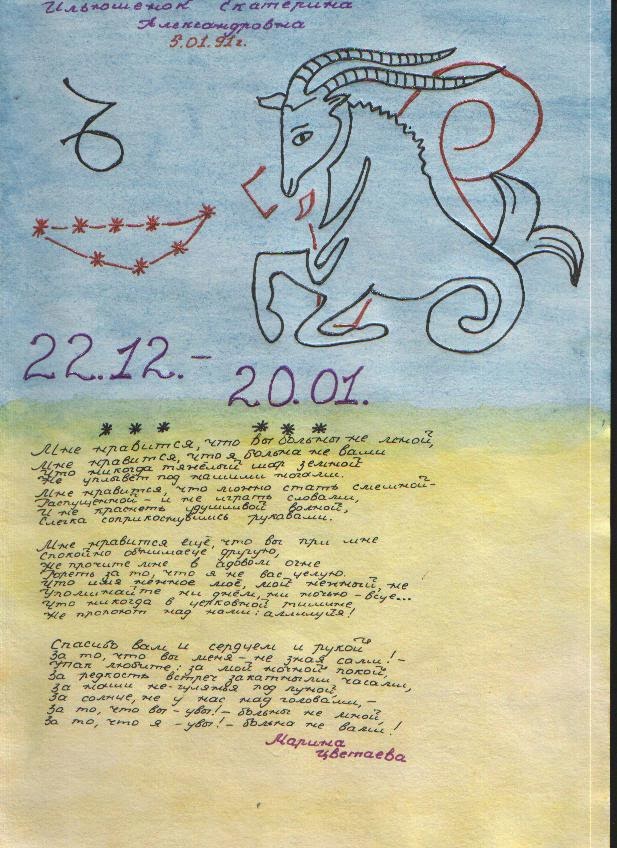 Ильюшенок Екатерина
Александровна
5.01.91г.
22.12.-
20.01.
* * * * * *
Мне нравится, что Вы больны не мной,
Мне нравится, что я больна не вами
Что никогда тяжёлый шар земной
Не уплывёт под нашими ногами.
Мне нравится, что можно стать смешной-
Распущенной - и не играть словами,
И не краснеть удушливой волной,
Слегка соприкоснувшись рукавами.
Мне нравится ещё, что вы при мне
Спокойно обнимаете другую,
Не прочите мне в адовом огне
Гореть за то, что я не вас целую.
Что имя нежное моё, мой нежный, не
Упоминайте ни днём, ни ночью - всуе...
Что никогда в церковной тишине
Не пропоют над нами: аллилуйя!
Спасибо вам и сердцем и рукой
За то, что вы меня - не зная сами! -
Так любите: за мой ночной покой,
За редкость встреч закатными часами,
За наши не-гулянья под луной,
За солнце, не у нас над головами, -
За то, что вы - увы! - больны не мной,
За то, что я - увы! - больна не вами!
Марина
Цветаева